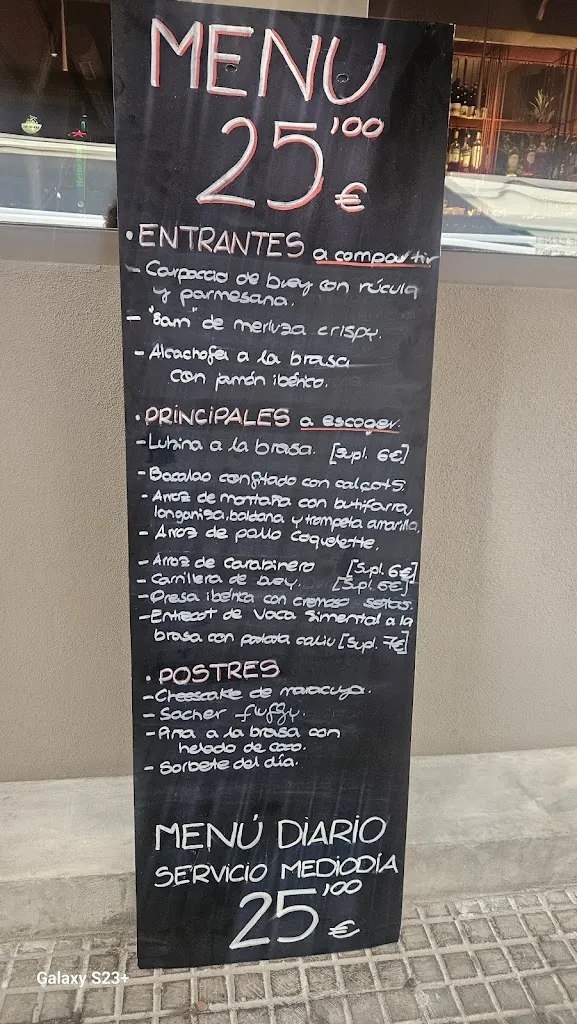 MENU
25'00 €
• ENTRANTES a compartir
- Carpaccio de buey con rúcula
y parmesana.
- "Bam" de merluza crispy.
- Alcachofa a la brasa
con jamón ibérico.
• PRINCIPALES a escoger.
- Lubina a la brasa. [Supl. 6€]
- Bacalao confitado con calçots.
- Arroz de montaña con butifarra,
longaniza, baldana y trompeta amarilla.
- Arroz de pollo coquelette.
- Arroz de Carabinero [Supl. 6€]
- Carrillera de buey. [Supl. 6€]
- Presa ibérica con cremoso setas.
- Entrecot de Vaca Simental a la
brasa con patata caliu [Supl. 7€]
• POSTRES
- Cheescake de maracuya.
- Sacher fluffy.
- Piña a la brasa con
helado de coco.
- Sorbete del día.
MENÚ DIARIO
SERVICIO MEDIODÍA
25'00 €
Galaxy S23+